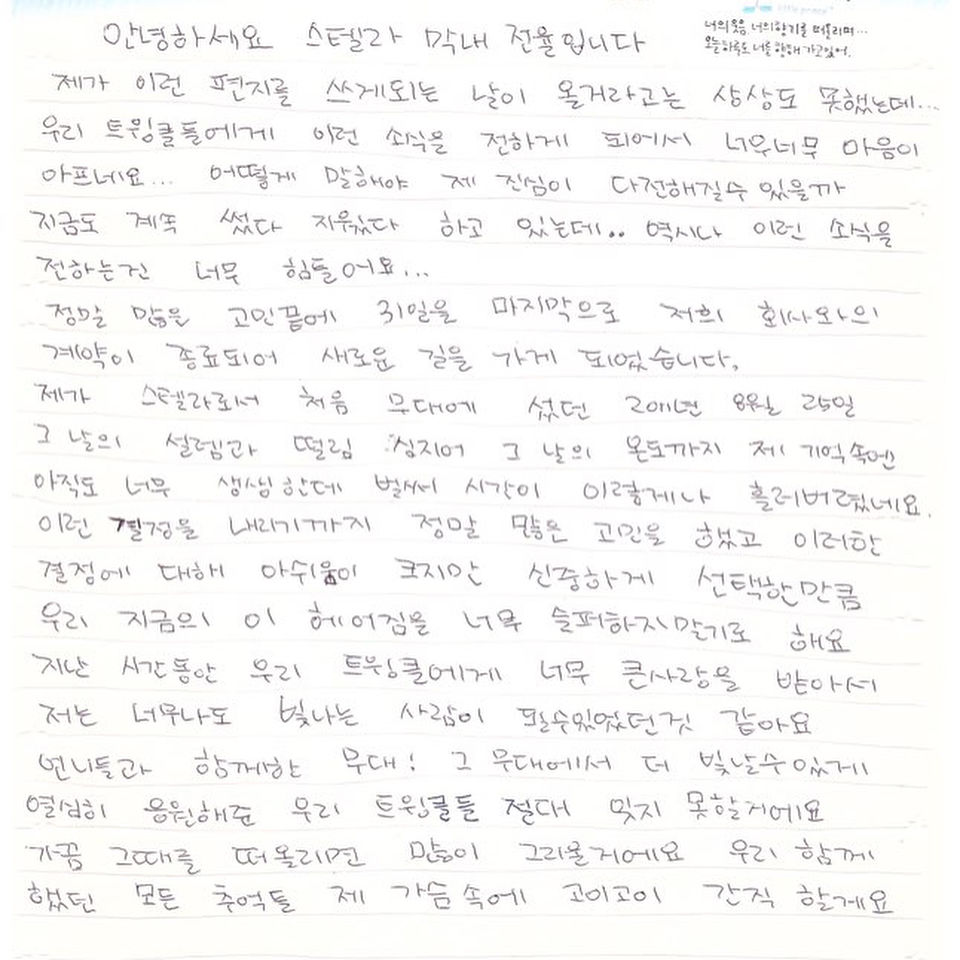 little prince
너의 웃음 너의 향기를 떠올리며...
오늘 하루도 너를 향해 가고있어.
안녕하세요 스텔라 막내 전율입니다
제가 이런 편지를 쓰게되는 날이 올거라고는 상상도 못했는데...
우리 트윙클들에게 이런 소식을 전하게 되어서 너무너무 마음이
아프네요... 어떻게 말해야 제 진심이 다전해질수 있을까
지금도 계속 썼다 지웠다 하고 있는데.. 역시나 이런 소식을
전하는건 너무 힘들어요...
정말 많은 고민끝에 31일을 마지막으로 저희 회사와의
계약이 종료되어 새로운 길을 가게 되었습니다.
제가 스텔라로서 처음 무대에 섰던 2011년 8월 25일
그 날의 설렘과 떨림 심지어 그 날의 온도까지 제 기억속엔
아직도 너무 생생한데 벌써 시간이 이렇게나 흘러버렸네요.
이런 결정을 내리기까지 정말 많은 고민을 했고 이러한
결정에 대해 아쉬움이 크지만 신중하게 선택한만큼
우리 지금의 이 헤어짐을 너무 슬퍼하지말기로 해요
지난 시간동안 우리 트윙클에게 너무 큰사랑을 받아서
저는 너무나도 빛나는 사람이 될수있었던것 같아요
언니들과 함께한 무대! 그 무대에서 더 빛날수있게
열심히 응원해준 우리 트윙클들 절대 잊지 못할거에요
가끔 그때를 떠올리면 많이 그리울거에요 우리 함께
했던 모든 추억들 제 가슴속에 고이고이 간직 할게요